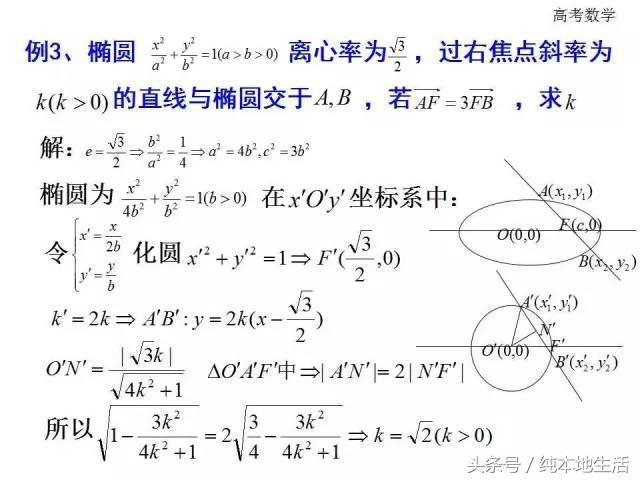 高考数学
例3、椭圆 x²/a² + y²/b² = 1(a > b > 0) 离心率为 √3/2 ，过右焦点斜率为
k(k > 0)的直线与椭圆交于 A, B ，若 \overrightarrow{AF} = 3\overrightarrow{FB} ，求 k
解：e = √3/2 ⇒ b²/a² = 1/4 ⇒ a² = 4b², c² = 3b²
椭圆为 x²/4b² + y²/b² = 1(b > 0) 在 x'O'y' 坐标系中：
A(x₁, y₁)
F(c,0)
O(0,0)
B(x₂, y₂)
令 { x' = x/2b y' = y/b 化圆 x'² + y'² = 1 ⇒ F'(√3/2, 0)
k' = 2k ⇒ A'B' : y = 2k(x − √3/2)
A'(x'₁, y'₁)
N'
O'(0,0)
F'
B'(x'₂, y'₂)
O'N' = |√3k|/√(4k² + 1) ΔO'A'F'中 ⇒| A'N' |= 2 | N'F' |
所以 √(1 − 3k²/(4k² + 1)) = 2√(3/4 − 3k²/(4k² + 1)) ⇒ k = √2(k > 0)
头条号 / 纯本地生活